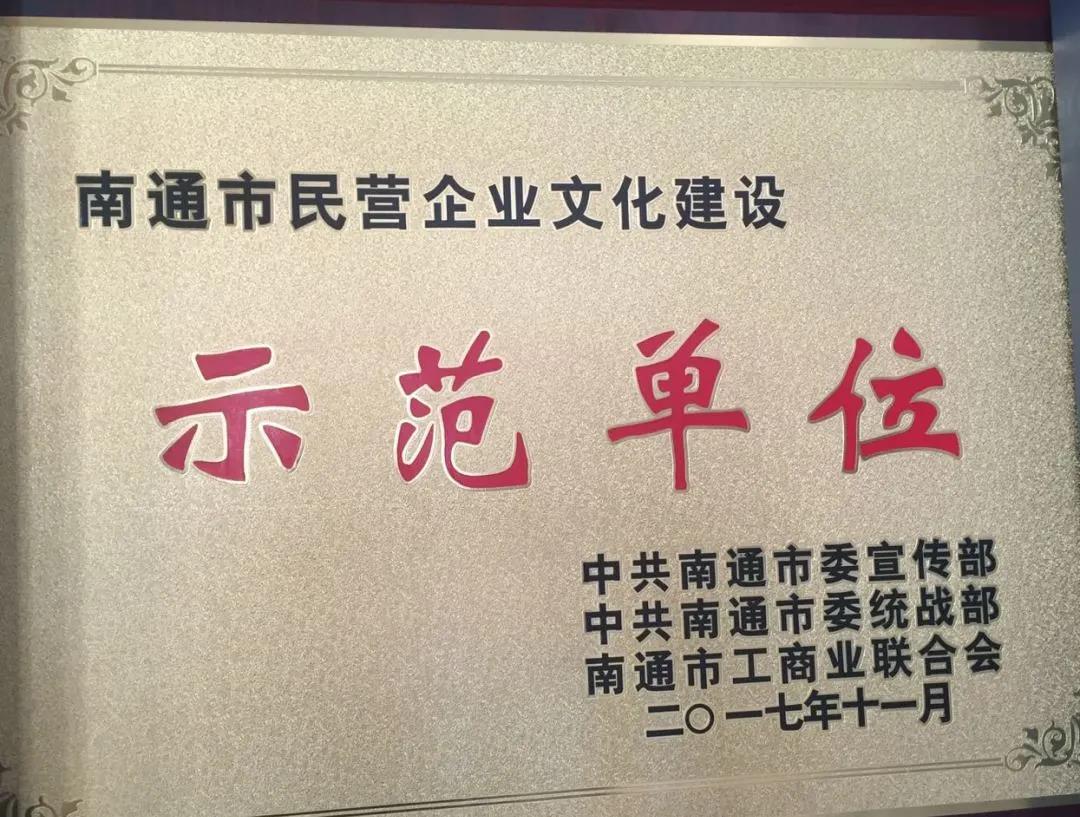 南通市民营企业文化建设
示范单位
中共南通市委宣传部
中共南通市委统战部
南通市工商业联合会
二〇一七年十一月